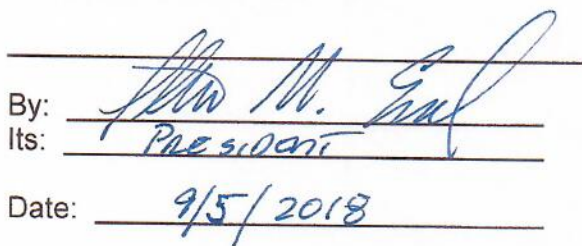 By: M.
Its: PRESIDENT
Date: 9/5/2018